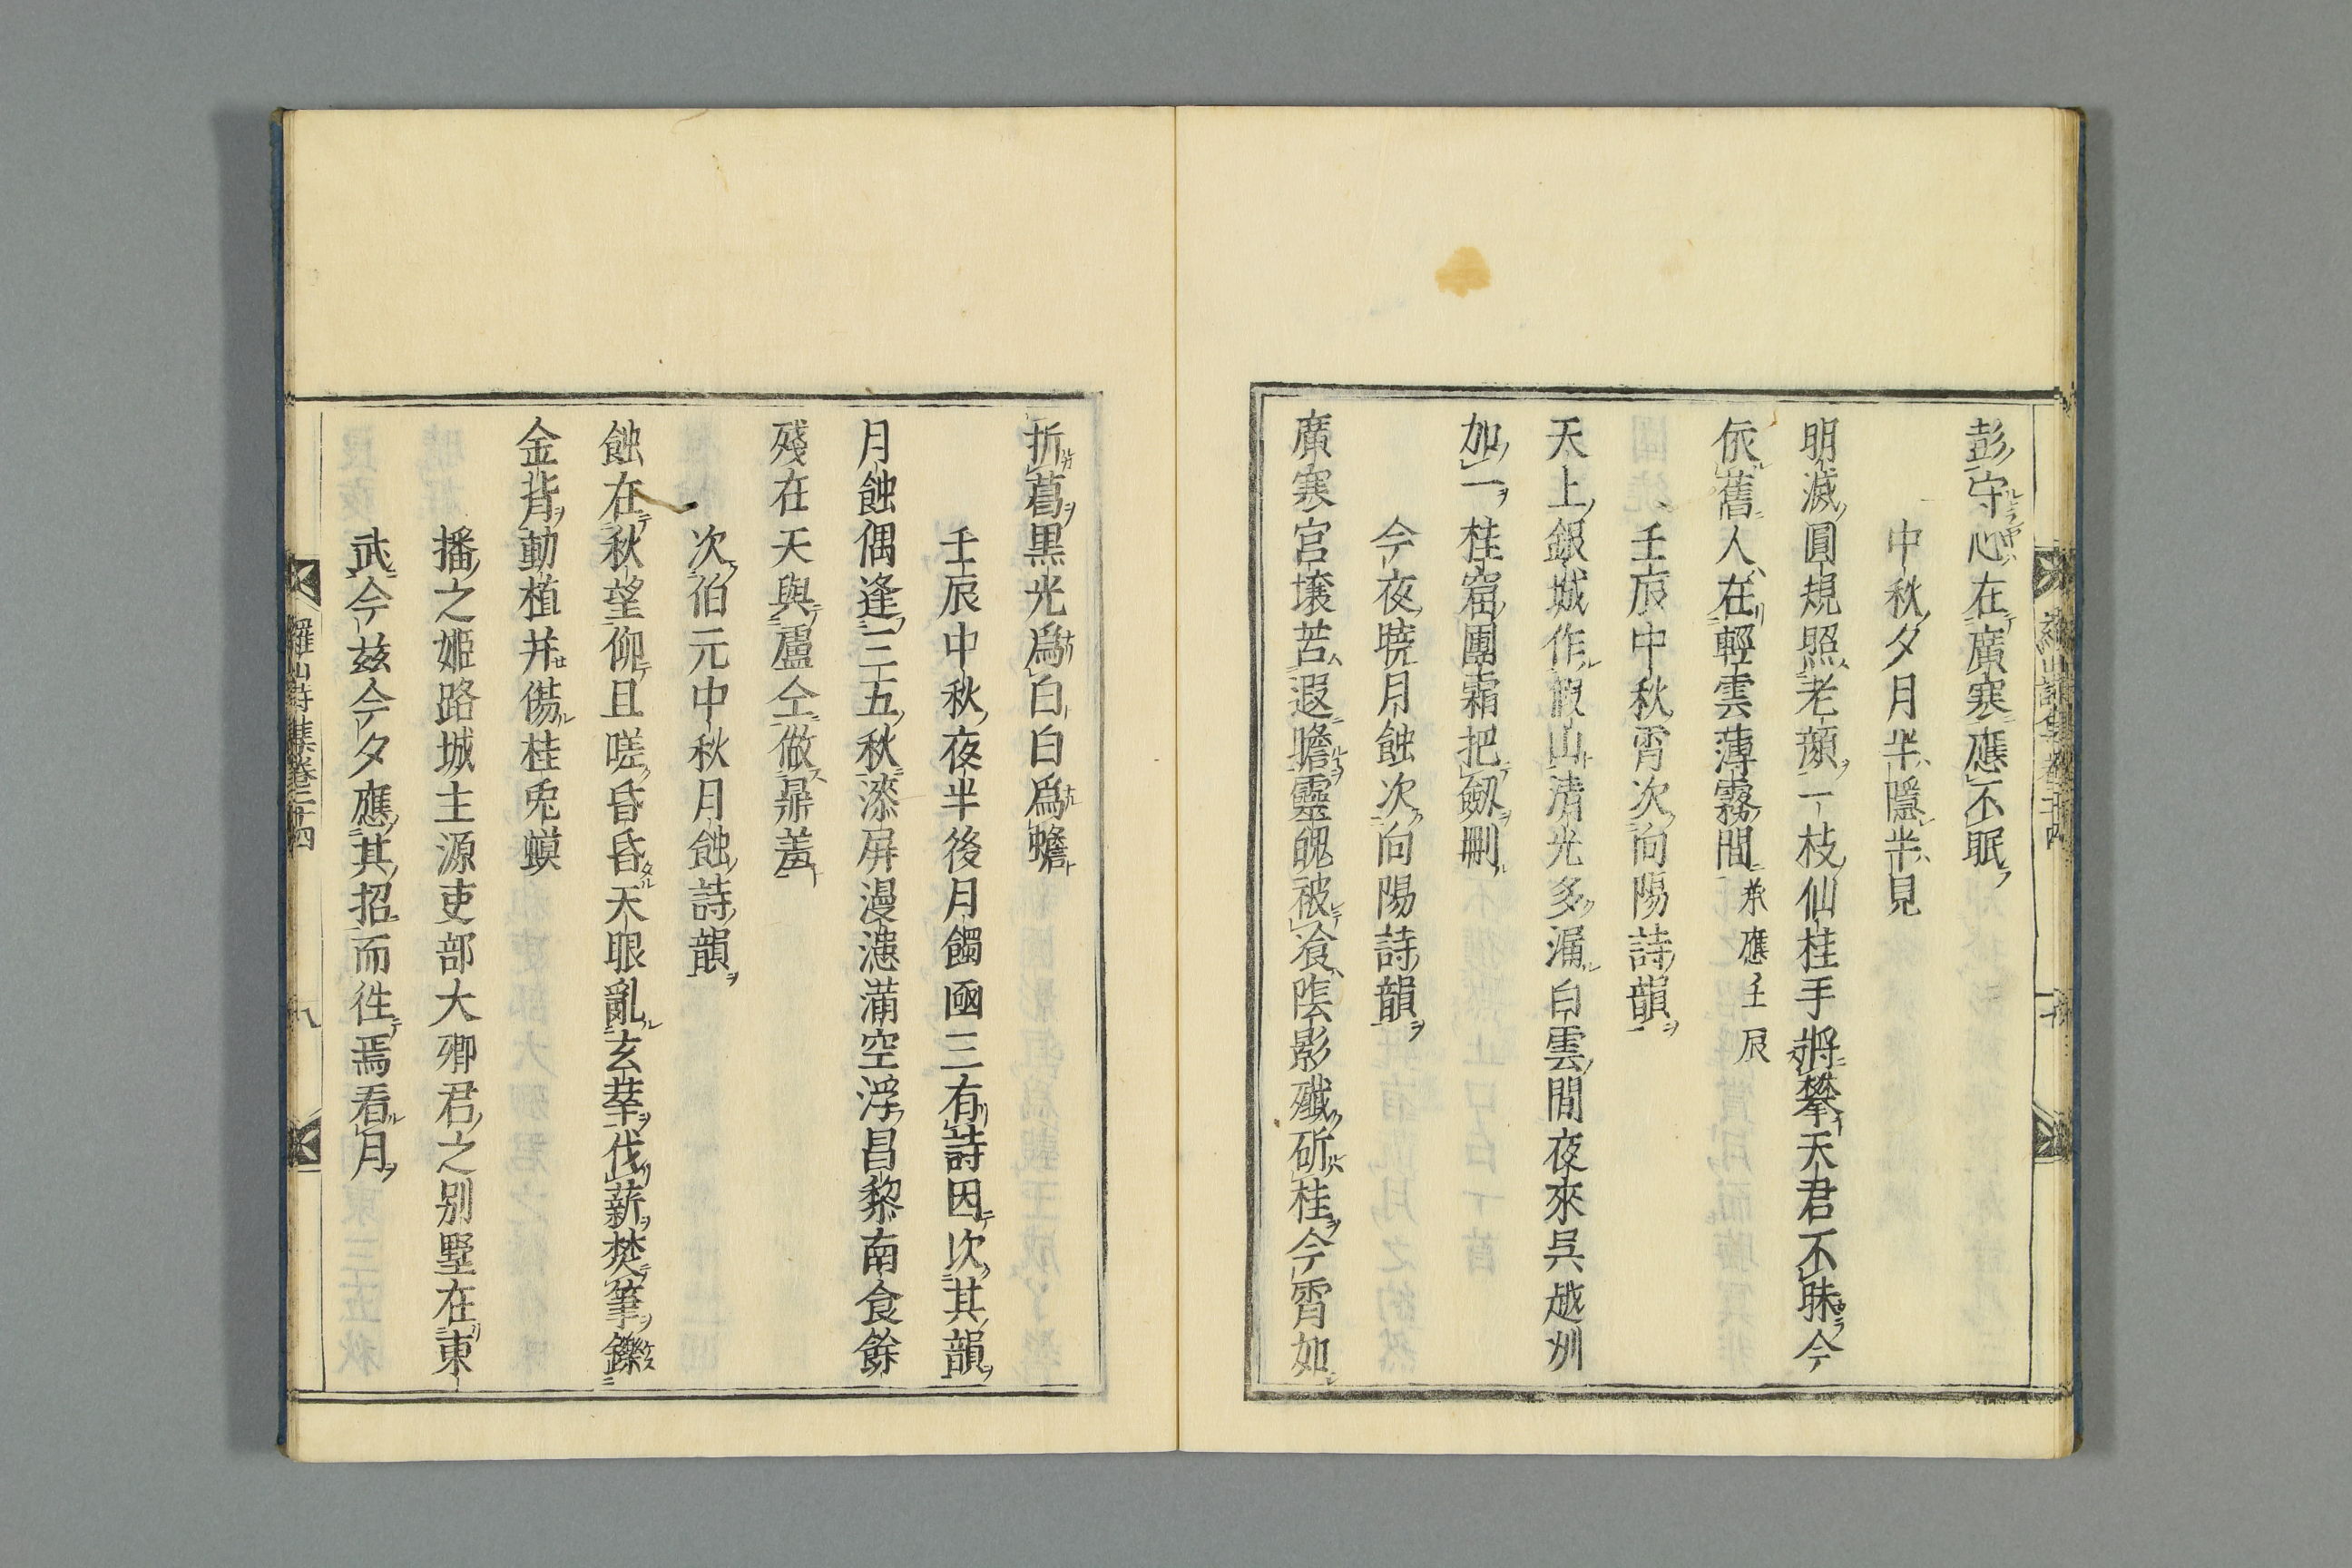 彭守心在廣寒應不眠
中秋夕月半隱半見
明滅圓規照老顏一枝仙桂手將攀天君不昧今
依舊人在輕雲薄霧間 承應壬辰
壬辰中秋宵次向陽詩韻
天上銀城作假山清光多漏白雲間夜來吳越州
加一桂窟團霜把劔刪
今夜曉月蝕次向陽詩韻
廣寒宮壞苦遐瞻靈魄被飡陰影殲斫桂今霄如
折葛黒光爲白白爲蟾
壬辰中秋夜半後月蠲國三有詩因次其韻
月蝕偶逢三五秋漆屏漫漶滿空浮昌黎南食餘
殘在天與盧仝做鼎羞
次伯元中秋月蝕詩韻
蝕在秋望仰且嗟昏昏天眼亂玄𦾔伐薪焚筆鑠
金背動植并傷桂兎蟆
播之姬路城主源吏部大卿君之別墅在東
武今茲今夕應其招而徃焉看月
羅山詩集卷三十四
八